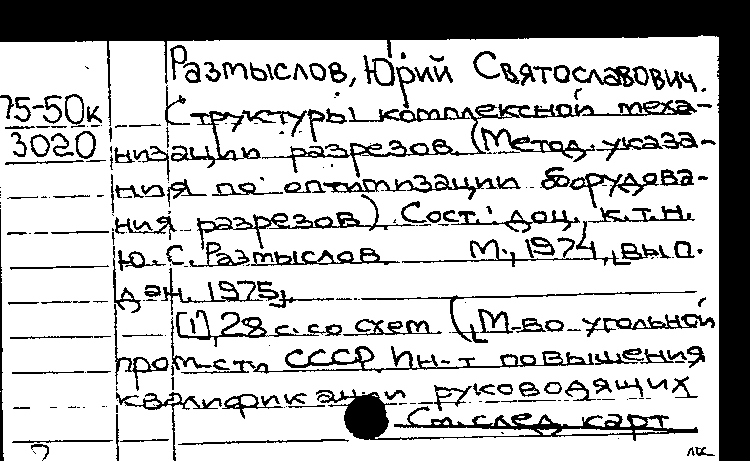 Размыслов, Юрий Святославович.
75-50к
Структуры комплексной меха-
3020
низации разрезов. (Метод. указа-
ния по оптимизации оборудова-
ния разрезов). Сост.: доц., к.т.н.
Ю.С. Размыслов. М., 1974, [вып.
дан. 1975].
[1], 28 с. со схем. ([М-во угольной
пром-сти СССР. Ин-т повышения
квалификации руководящих
См. след. карт